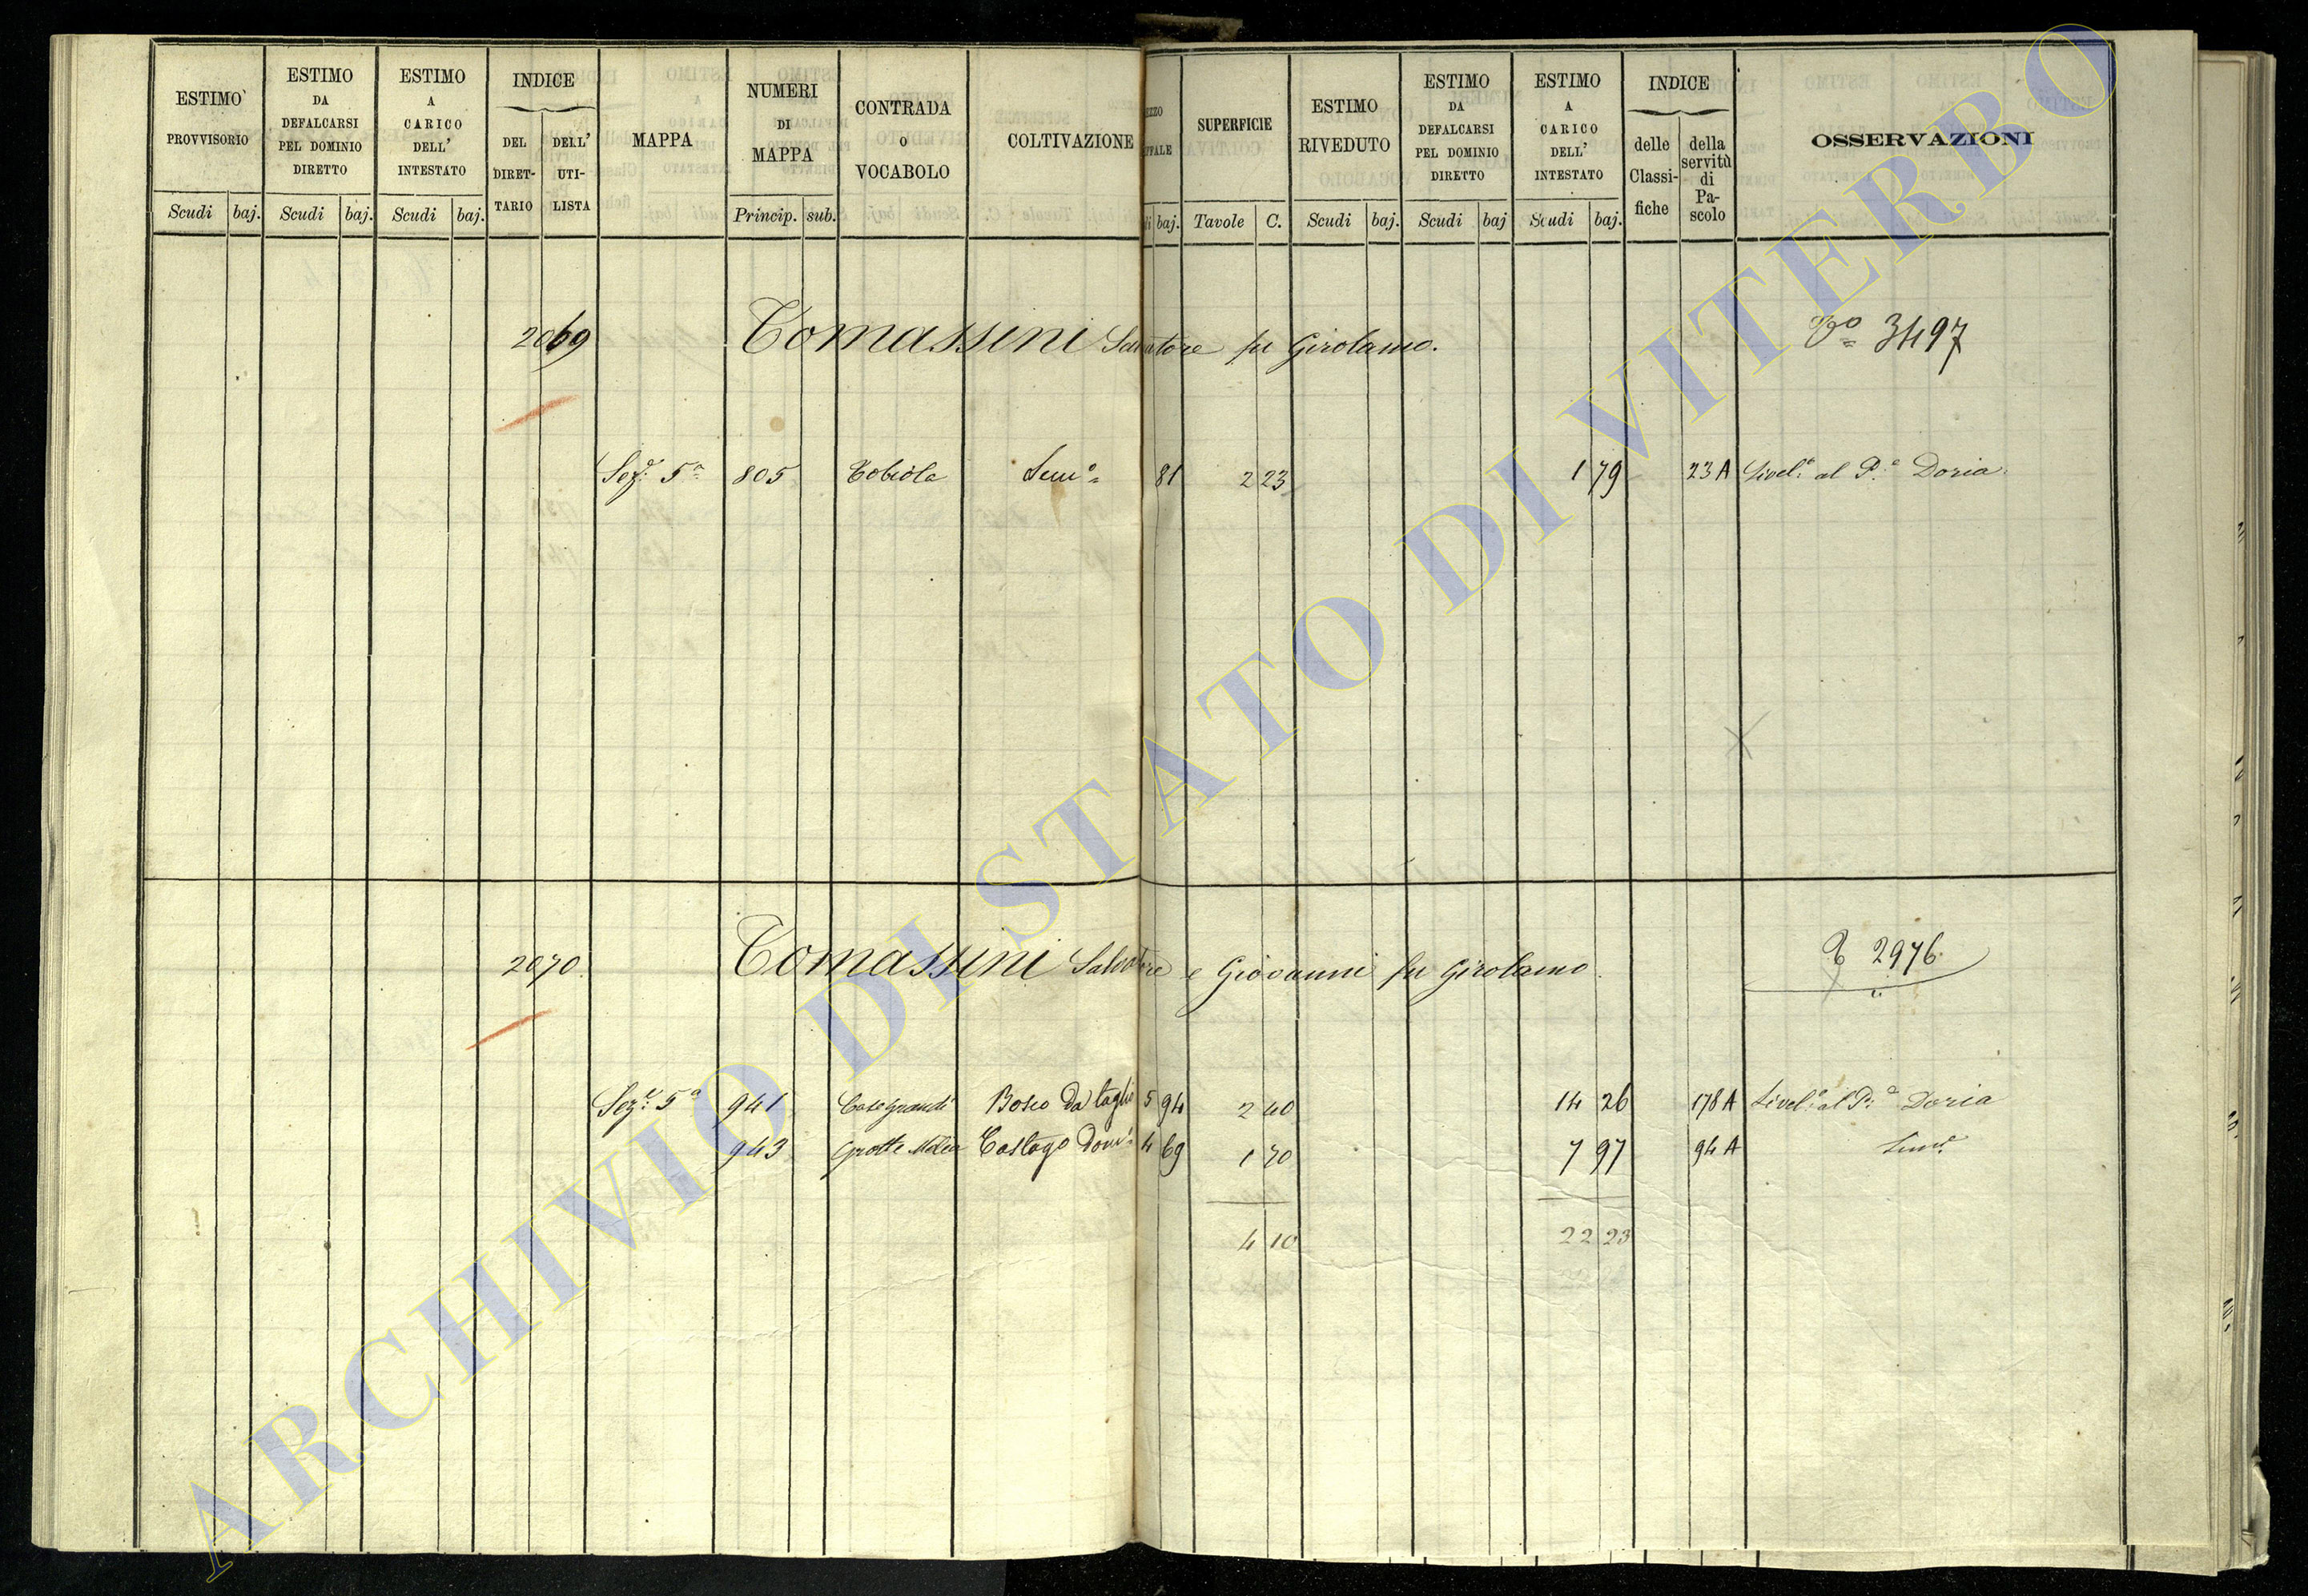 ESTIMO PROVVISORIO Scudi baj.
ESTIMO DA DEFALCARSI PEL DOMINIO DIRETTO Scudi baj.
ESTIMO A CARICO DELL' INTESTATO Scudi baj.
INDICE DEL DIRET-TARIO DELL' UTI-LISTA
MAPPA
NUMERI DI MAPPA Princip. sub.
CONTRADA O VOCABOLO
COLTIVAZIONE
baj.
SUPERFICIE Tavole C.
ESTIMO RIVEDUTO Scudi baj.
ESTIMO DA DEFALCARSI PEL DOMINIO DIRETTO Scudi baj
ESTIMO A CARICO DELL' INTESTATO Scudi baj.
INDICE delle Classi-fiche della servitù di Pa-scolo
OSSERVAZIONI
2069 Tomassini Salvatore fu Girolamo. Vo 3497
Sez. 5a 805 Tobiola Sem.o 81 2 23 1 79 23 A Livel.o al P.e Doria
2070 Tomassini Salvatore e Giovanni fu Girolamo. 2976
Sez. 5a 941 Casegrandi Bosco da taglio 5 94 2 40 14 26 178 A Livel.o al P.e Doria
943 Grotte Castag.o Dom.o 4 69 1 70 7 97 94 A
4 10 22 23
ARCHIVIO DI STATO DI VITERBO